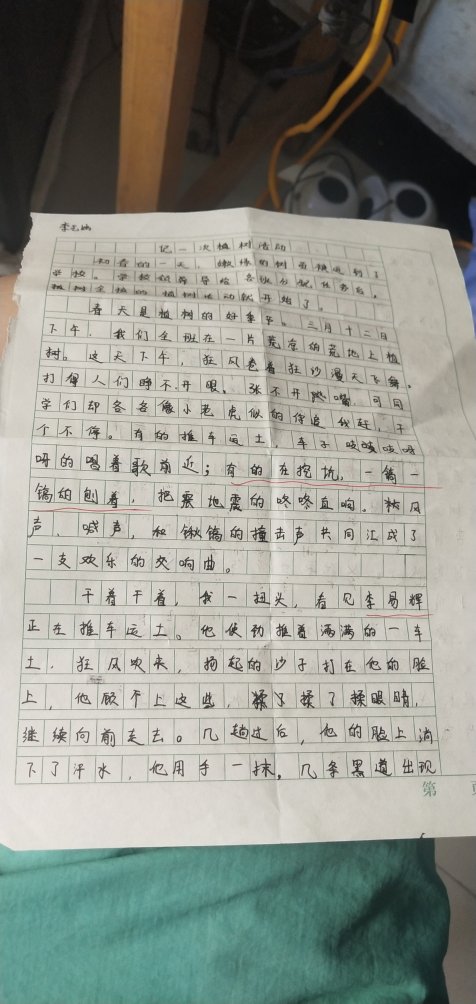 记一次植树活动
初春的一天，嫩绿的树苗
学校。学校领导给各班分配任务后，
植树活动就开始了。
春天是植树的好季节。三月十二日
下午，我们全班在一片荒凉的荒地上植
树。这天下午，狂风卷着狂沙漫天飞舞。
打得人们睁不开眼，张不开嘴，可同
学们却各各像小老虎似的你追我赶，干
个不停。有的推车运土，车子吱嘎吱呀
呀的唱着歌前近；有的在挖坑，一镐一
镐的刨着，把震地震的咚咚直响。秋风
声、喊声，和锹镐的撞击声共同汇成了
一支欢乐的交响曲。
干着干着，我一扭头，看见李易辉
正在推车运土。他使劲推着满满的一车
土，狂风吹来，扬起的沙子打在他的脸
上，他顾不上这些，揉了揉眼睛，
继续向前走去。几趟过后，他的脸上淌
下了汗水，他用手一抹，几条黑道出现
第